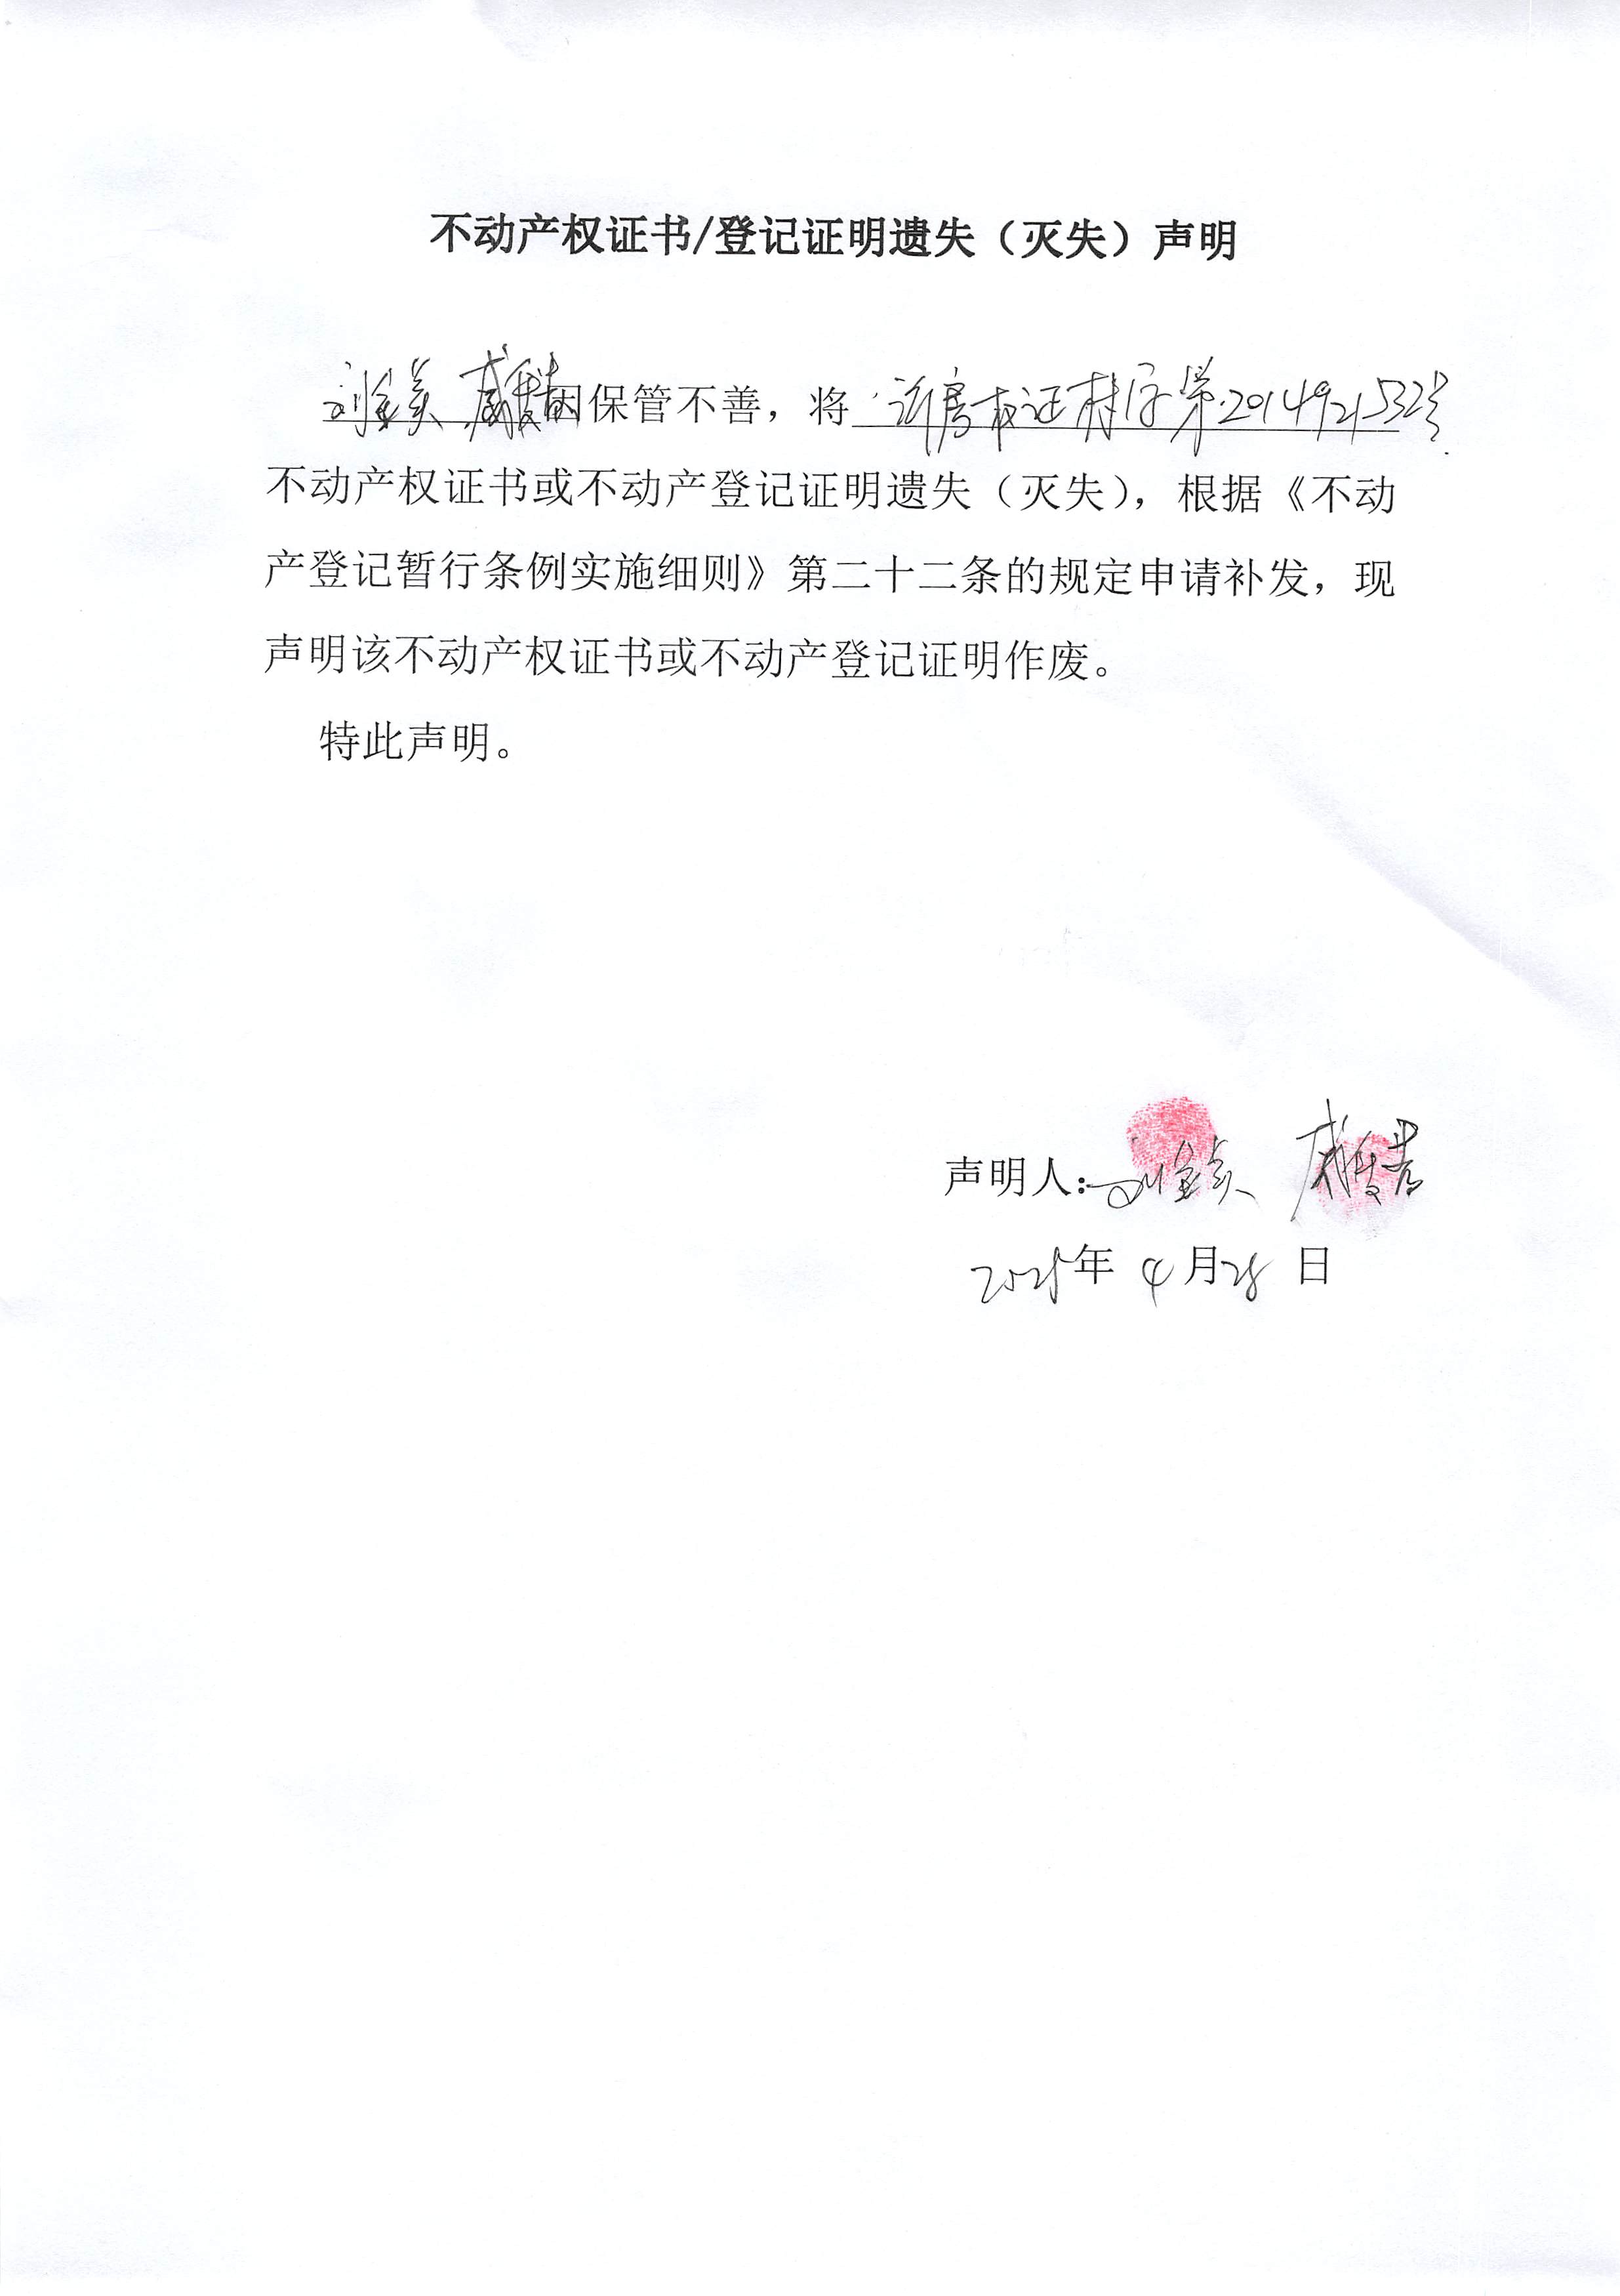 不动产权证书/登记证明遗失（灭失）声明
刘金美 因保管不善，将 沂房权证 字第2014921532号
不动产权证书或不动产登记证明遗失（灭失），根据《不动
产登记暂行条例实施细则》第二十二条的规定申请补发，现
声明该不动产权证书或不动产登记证明作废。
特此声明。
声明人：刘金美
2025年 4月28日